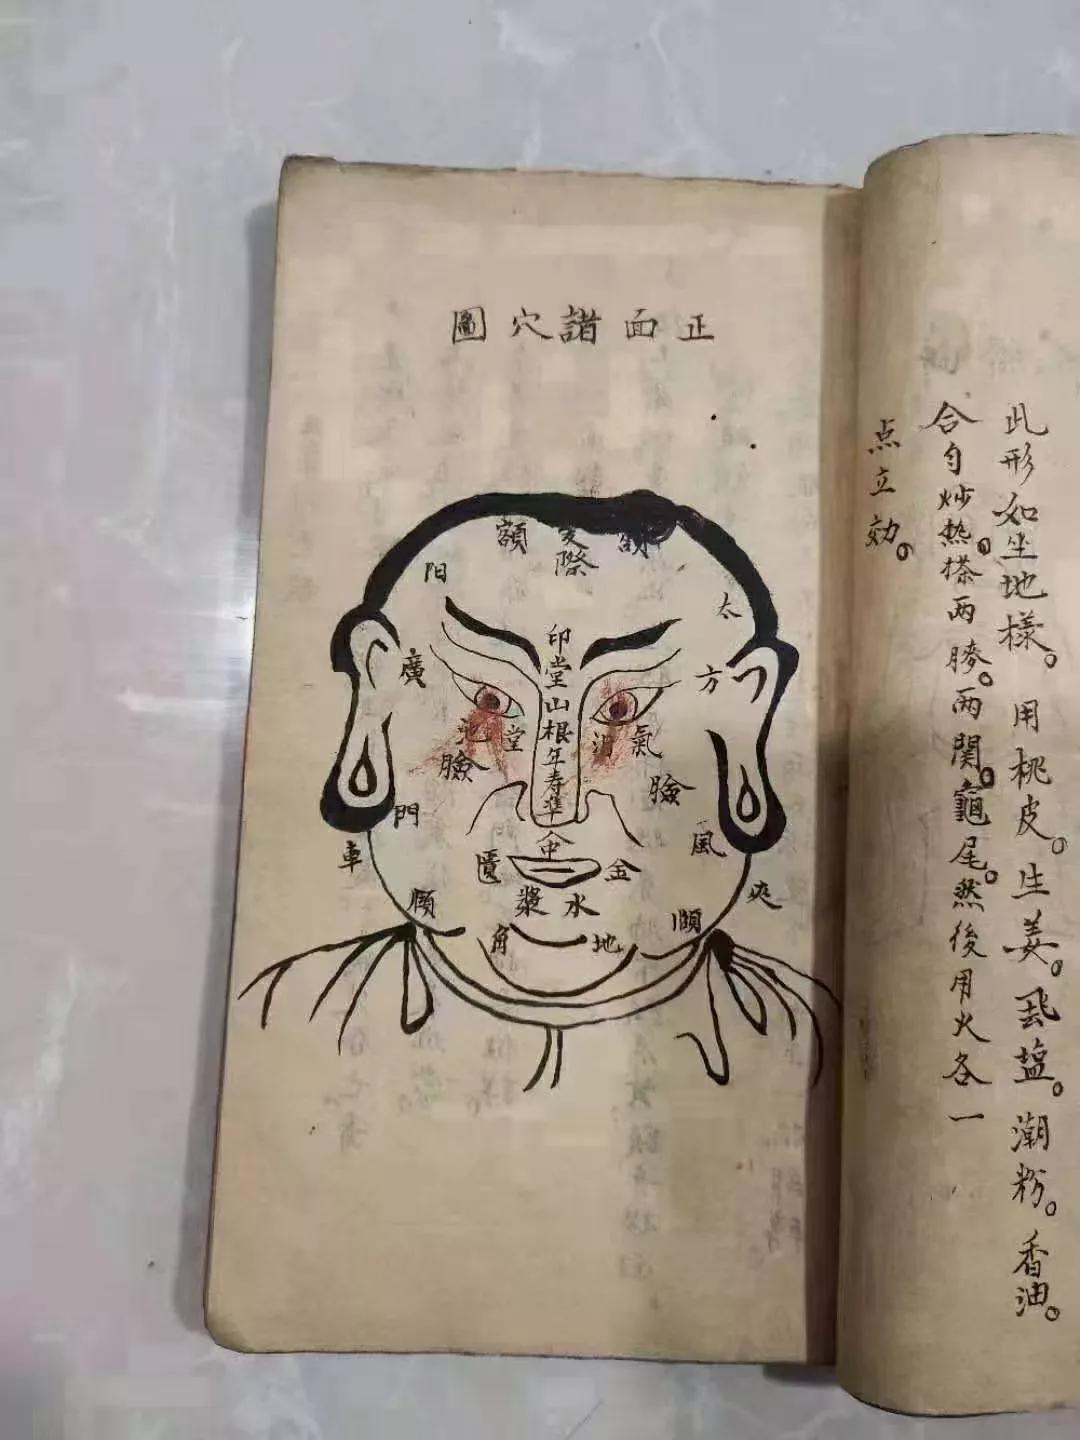 此形如坐地樣。用桃皮。生姜。飛塩。潮粉。香油。
合勻炒热。搽两胯。两関。龜尾。然後用火各一
点立効。
正面諸穴圖
額
際
額
太
阳
印堂山根年寿準
方
廣
氣
池
堂
池
臉
臉
風
門
車
中
金
匱
夾
水漿
頤
頤
地角